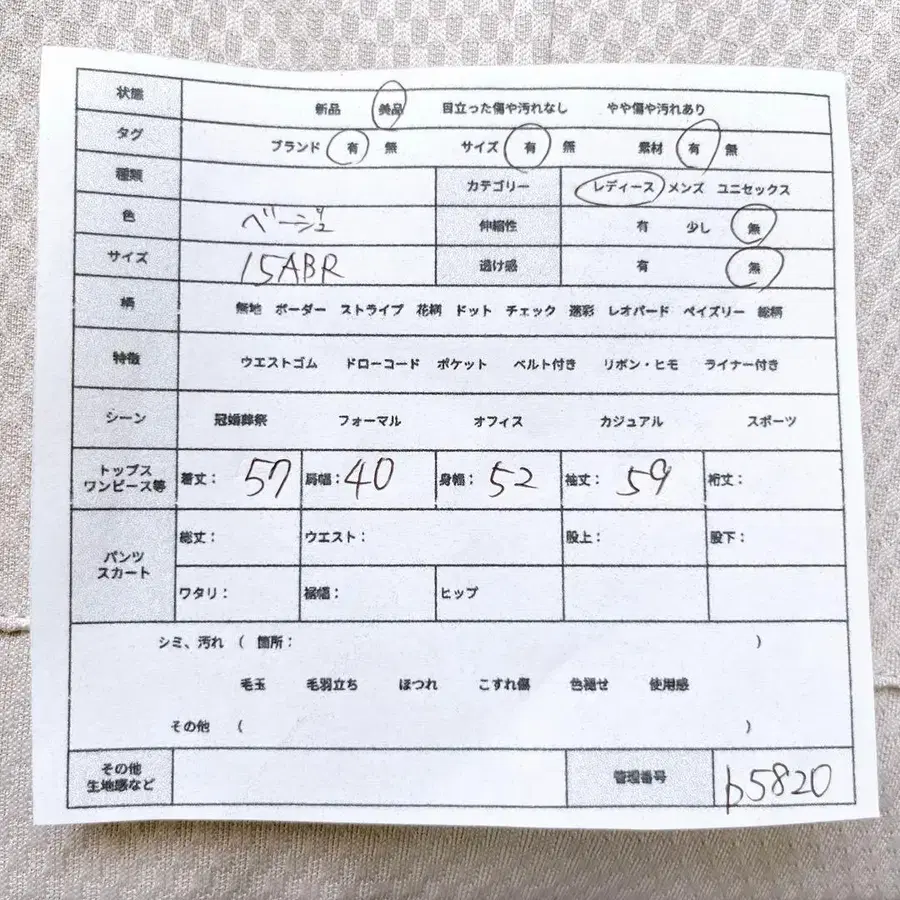 状態 新品 美品 目立った傷や汚れなし やや傷や汚れあり
タグ ブランド 有 無 サイズ 有 無 素材 有 無
種類 カテゴリー レディース メンズ ユニセックス
色 ベージュ 伸縮性 有 少し 無
サイズ 15ABR 透け感 有 無
柄 無地 ボーダー ストライプ 花柄 ドット チェック 迷彩 レオパード ペイズリー 総柄
特徴 ウエストゴム ドローコード ポケット ベルト付き リボン・ヒモ ライナー付き
シーン 冠婚葬祭 フォーマル オフィス カジュアル スポーツ
トップス
ワンピース等 着丈: 57 肩幅: 40 身幅: 52 袖丈: 59 裄丈:
パンツ
スカート 総丈: ウエスト: 股上: 股下:
ワタリ: 裾幅: ヒップ
シミ、汚れ ( 箇所: )
毛玉 毛羽立ち ほつれ こすれ傷 色褪せ 使用感
その他 ( )
その他
生地感など 管理番号 b5820